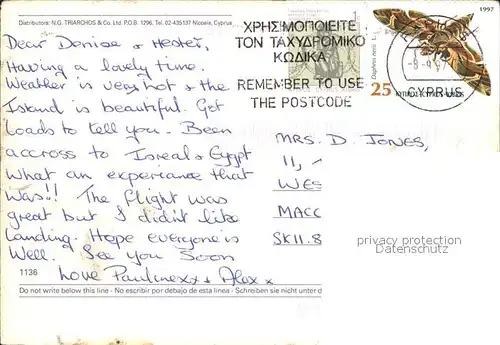 Distributors: N.G. TRIARCHOS & Co. Ltd P.O.B. 1296, Tel. 02-435137 Nicosia, Cyprus
Dear Denise & Hester,
Having a lovely time.
Weather is very hot & the
Island is beautiful. Got
Loads to tell you. Been
accross to Isreal & Egypt
What an experiance that
Was!! The flight was
great but I didn't like
Landing. Hope everyone is
Well. See You Soon
Love Paulinexx & Alex x
1136
Do not write below this line - No escribir por debajo de esta linea - Schreiben sie nicht unter d
ΧΡΗΣΙΜΟΠΟΙΕΙΤΕ
ΤΟΝ ΤΑΧΥΔΡΟΜΙΚΟ
ΚΩΔΙΚΑ
REMEMBER TO USE
THE POSTCODE
1997
Daphnis nerii
25
CYPRUS
MRS. D. JONES,
11,
WES
MACC
SK11.8
privacy protection
Datenschutz